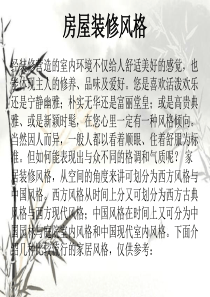 房屋装修风格
经装修营造的室内环境不仅给人舒适美好的感觉，也
能体现主人的修养、品味及爱好。您是喜欢活泼欢乐
还是宁静幽雅；朴实无华还是富丽堂皇；或是高贵典
雅，或是新颖时髦，在心里一定有一种风格倾向，
当然因人而异，一般人都以看着顺眼、住着舒服为标
准，但如何能表现出与众不同的格调和气质呢？ 家
居装修风格，从空间的角度来讲可划分为西方风格与
中国风格，西方风格从时间上分又可划分为西方古典
风格与西方现代风格；中国风格在时间上又可分为中
国园林与庭院室内风格和中国现代室内风格，下面介
绍几种比较流行的家居风格，仅供参考：